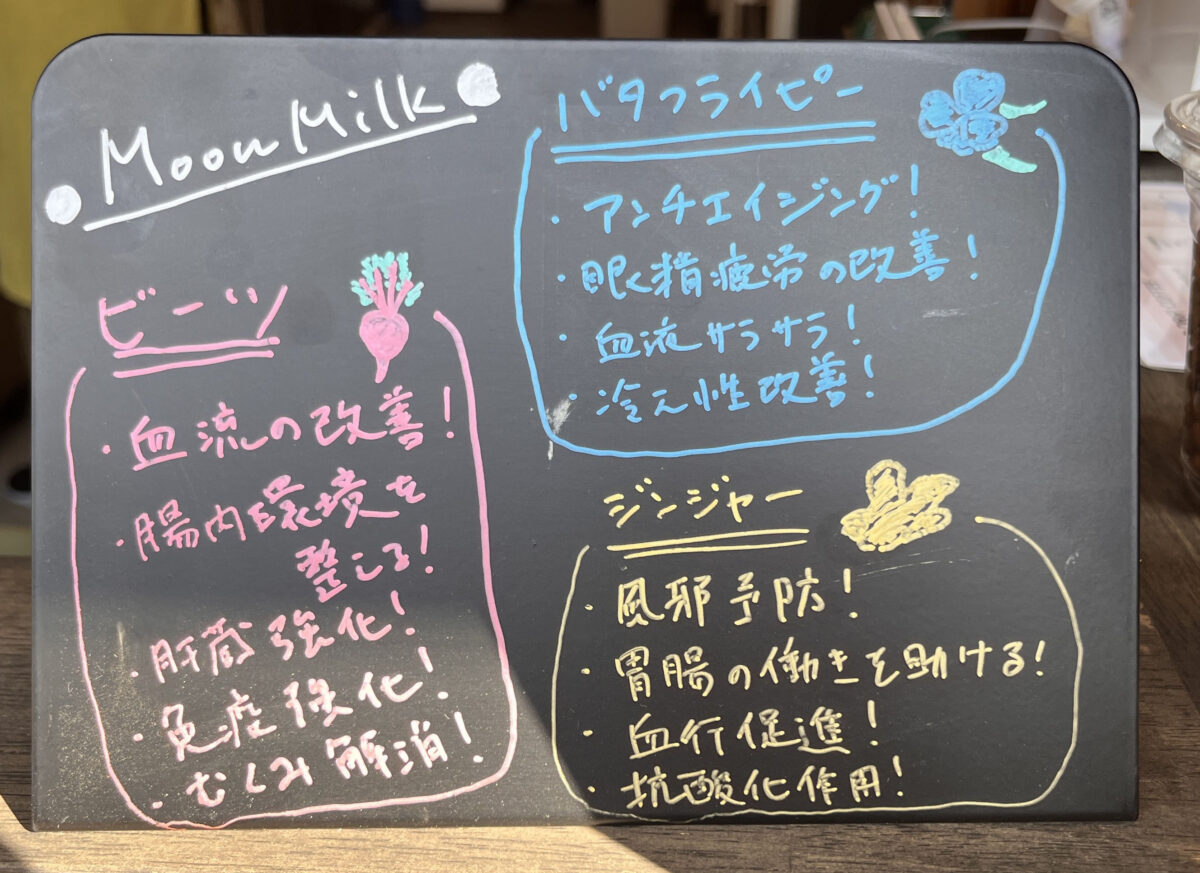 Moon Milk
ビーツ
・血流の改善!
・腸内環境を
整える!
・肝蔵強化!
・免疫強化!
・むくみ解消!
バタフライピー
・アンチエイジング!
・眼精疲労の改善!
・血液サラサラ!
・冷え性改善!
ジンジャー
・風邪予防!
・胃腸の働きを助ける!
・血行促進!
・抗酸化作用!